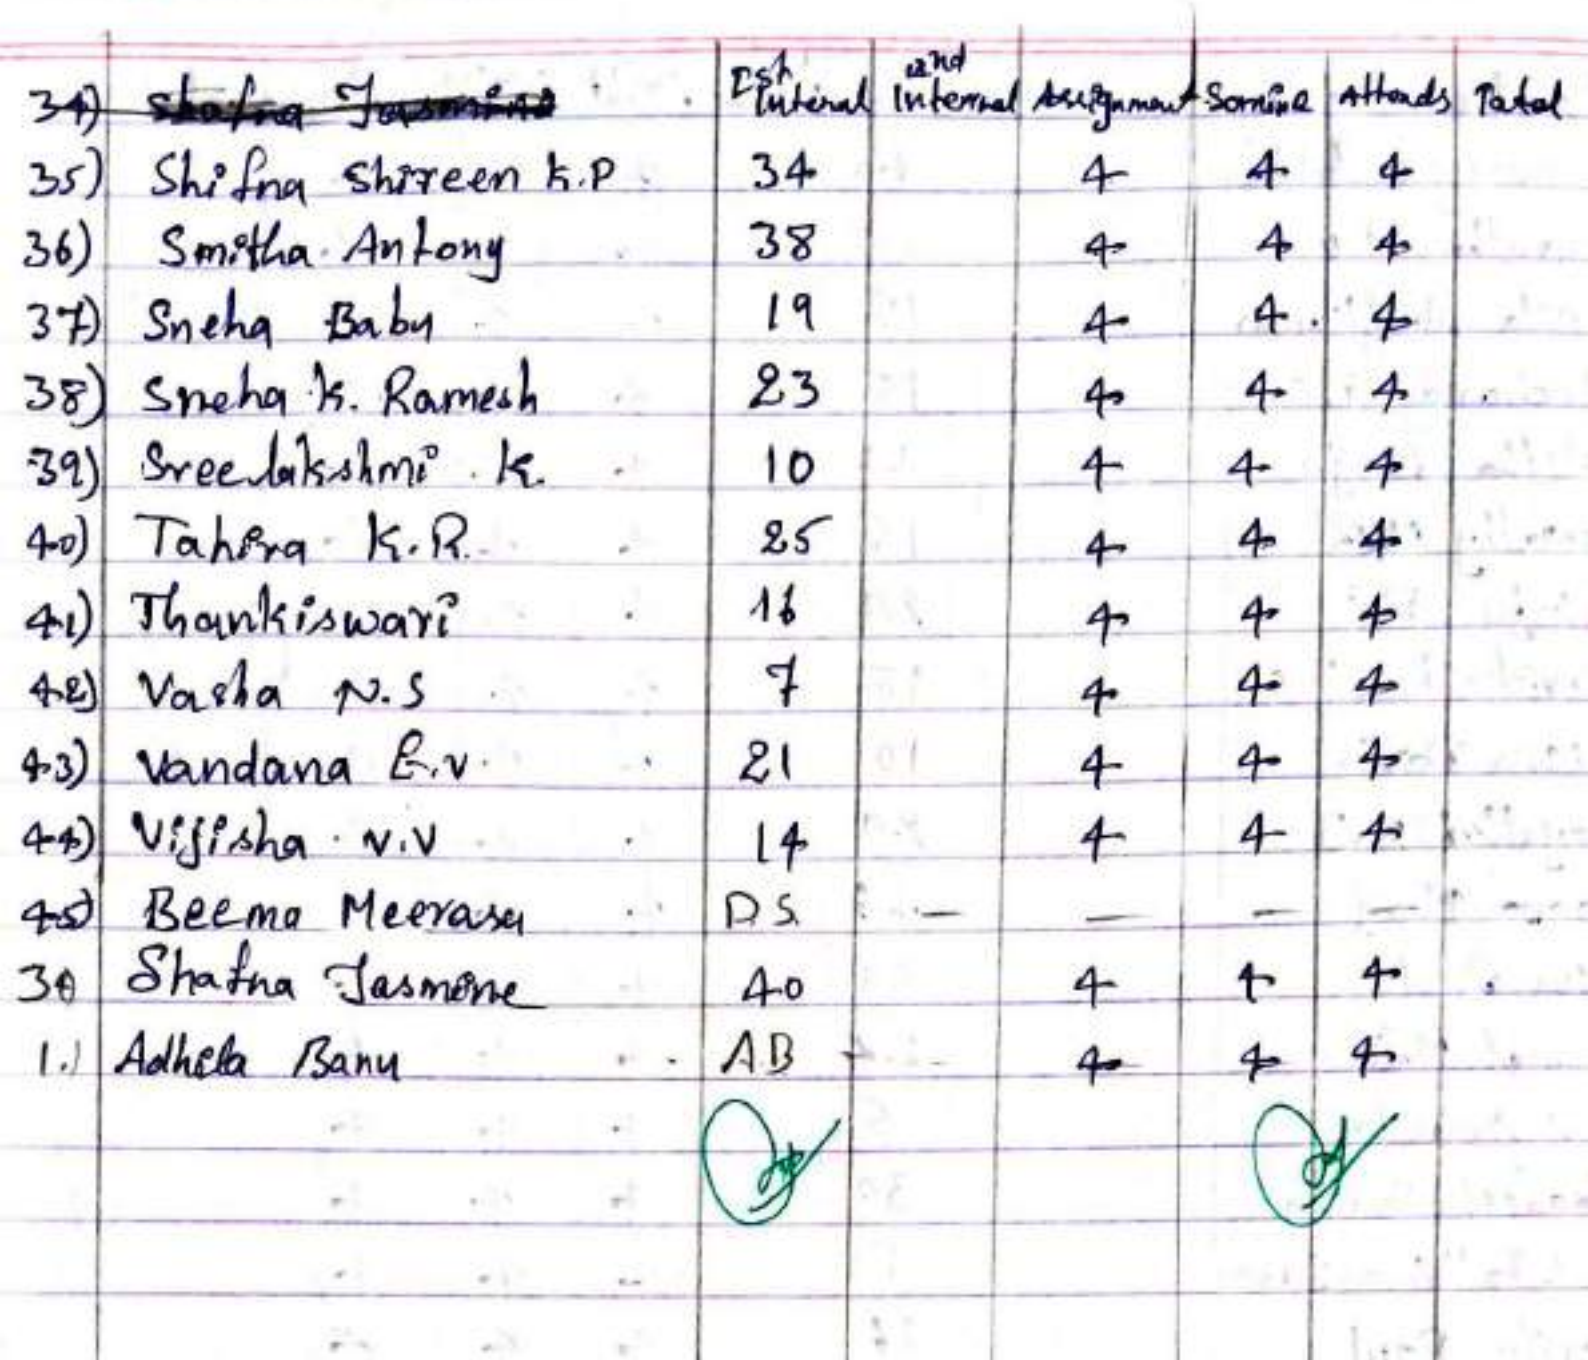 34) Shafna Jasmine Ist Internal 2nd Internal Assignment Semine Attends Total
35) Shifna Shireen K.P 34 4 4 4
36) Smitha Antony 38 4 4 4
37) Sneha Babu 19 4 4 4
38) Sneha K. Ramesh 23 4 4 4
39) Sreelakshmi K. 10 4 4 4
40) Tahira K.R. 25 4 4 4
41) Thankiswari 16 4 4 4
42) Vasha N.S 7 4 4 4
43) Vandana E.V. 21 4 4 4
44) Vijisha V.V 14 4 4 4
45) Beema Meerasa D.S. — — — —
34 Shafna Jasmine 40 4 4 4
1.) Adhela Banu AB - 4 4 4